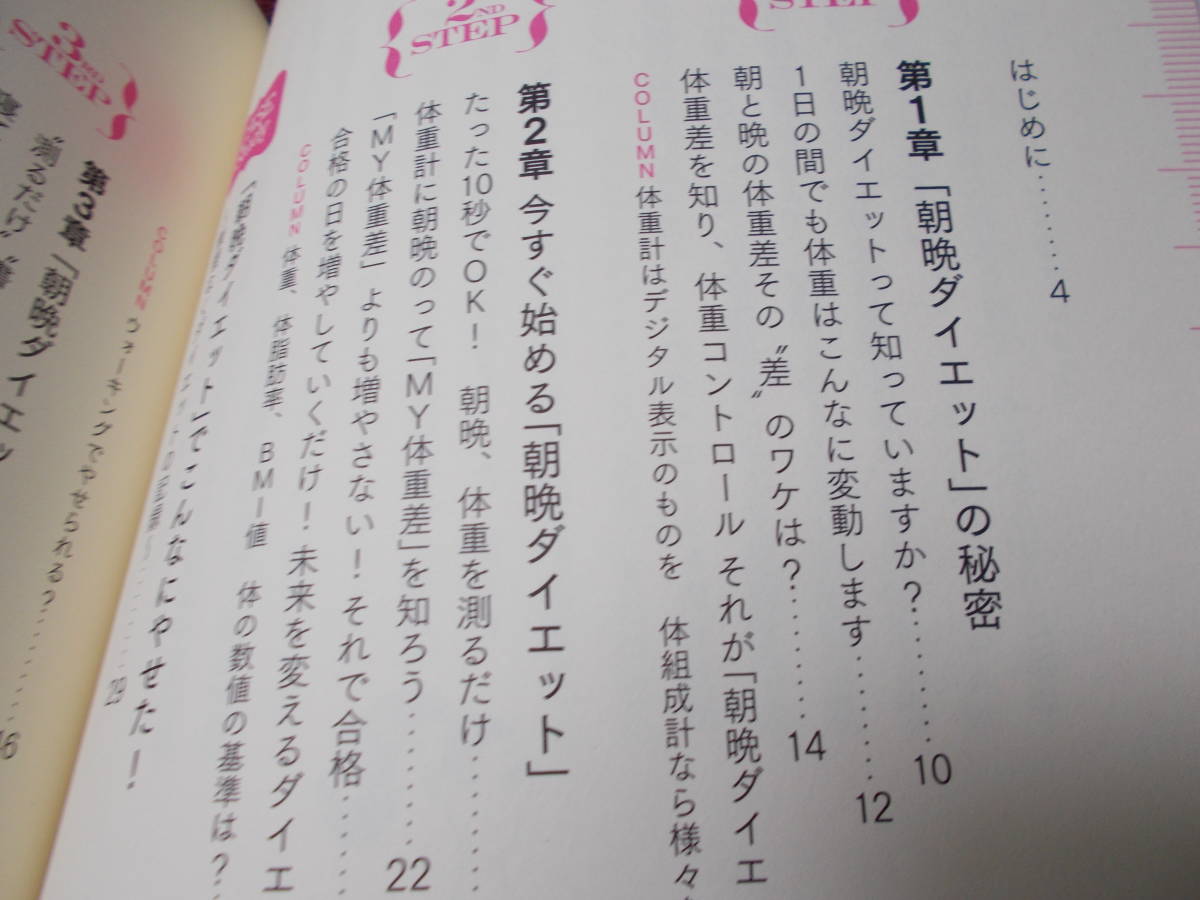 はじめに………4
STEP
第1章「朝晩ダイエット」の秘密
朝晩ダイエットって知っていますか?………10
1日の間でも体重はこんなに変動します………12
朝と晩の体重差その〝差〟のワケは?………14
体重差を知り、体重コントロール それが「朝晩ダイエ
COLUMN 体重計はデジタル表示のものを 体組成計なら様々
2ND STEP
第2章 今すぐ始める「朝晩ダイエット」
たった10秒でOK! 朝晩、体重を測るだけ………
体重計に朝晩のって「MY体重差」を知ろう………22
「MY体重差」よりも増やさない!それで合格………
合格の日を増やしていくだけ!未来を変えるダイエ
COLUMN 体重、体脂肪率、BMI値 体の数値の基準は?…
「朝晩ダイエット」でこんなにやせた!
29
3RD STEP
COLUMN ウォーキングでやせられる?………
第3章「朝晩ダイエッ
〝測るだけ〟